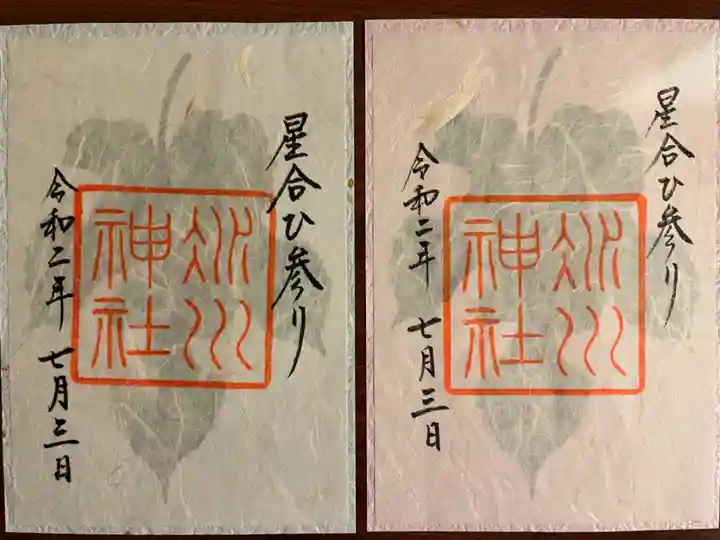 星合ひ参り
冰川
神社
令和二年 七月三日
星合ひ参り
冰川
神社
令和二年 七月三日